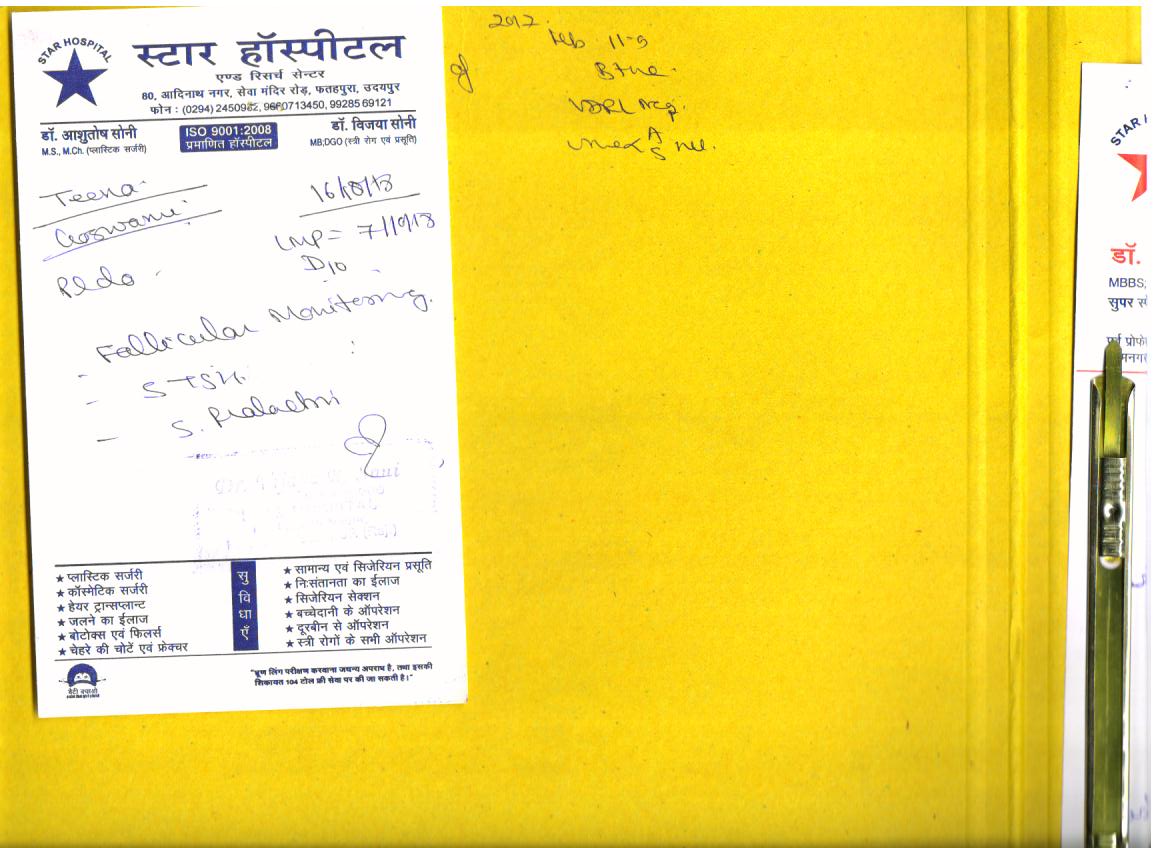 STAR HOSPITAL
स्टार हॉस्पीटल
एण्ड रिसर्च सेन्टर
80, आदिनाथ नगर, सेवा मंदिर रोड़, फतहपुरा, उदयपुर
फोन : (0294) 2450982, 9660713450, 9928569121
डॉ. आशुतोष सोनी
M.S., M.Ch. (प्लास्टिक सर्जरी)
ISO 9001:2008
प्रमाणित हॉस्पीटल
डॉ. विजया सोनी
MB;DGO (स्त्री रोग एवं प्रसूति)
Teena
Goswami
LMP =
D10
Follicular Monitering
- S TSH
- S.
★ प्लास्टिक सर्जरी
★ कॉस्मेटिक सर्जरी
★ हेयर ट्रान्सप्लान्ट
★ जलने का ईलाज
★ बोटोक्स एवं फिलर्स
★ चेहरे की चोटें एवं फ्रेक्चर
सुविधाएँ
★ सामान्य एवं सिजेरियन प्रसूति
★ निःसंतानता का ईलाज
★ सिजेरियन सेक्शन
★ बच्चेदानी के ऑपरेशन
★ दूरबीन से ऑपरेशन
★ स्त्री रोगों के सभी ऑपरेशन
बेटी बचाओ
"भ्रूण लिंग परीक्षण करवाना जघन्य अपराध है, तथा इसकी
शिकायत 104 टोल फ्री सेवा पर की जा सकती है।"
2012
Hb 11-9
B +ve
VDRL neg.
STAR
डॉ.
MBBS;